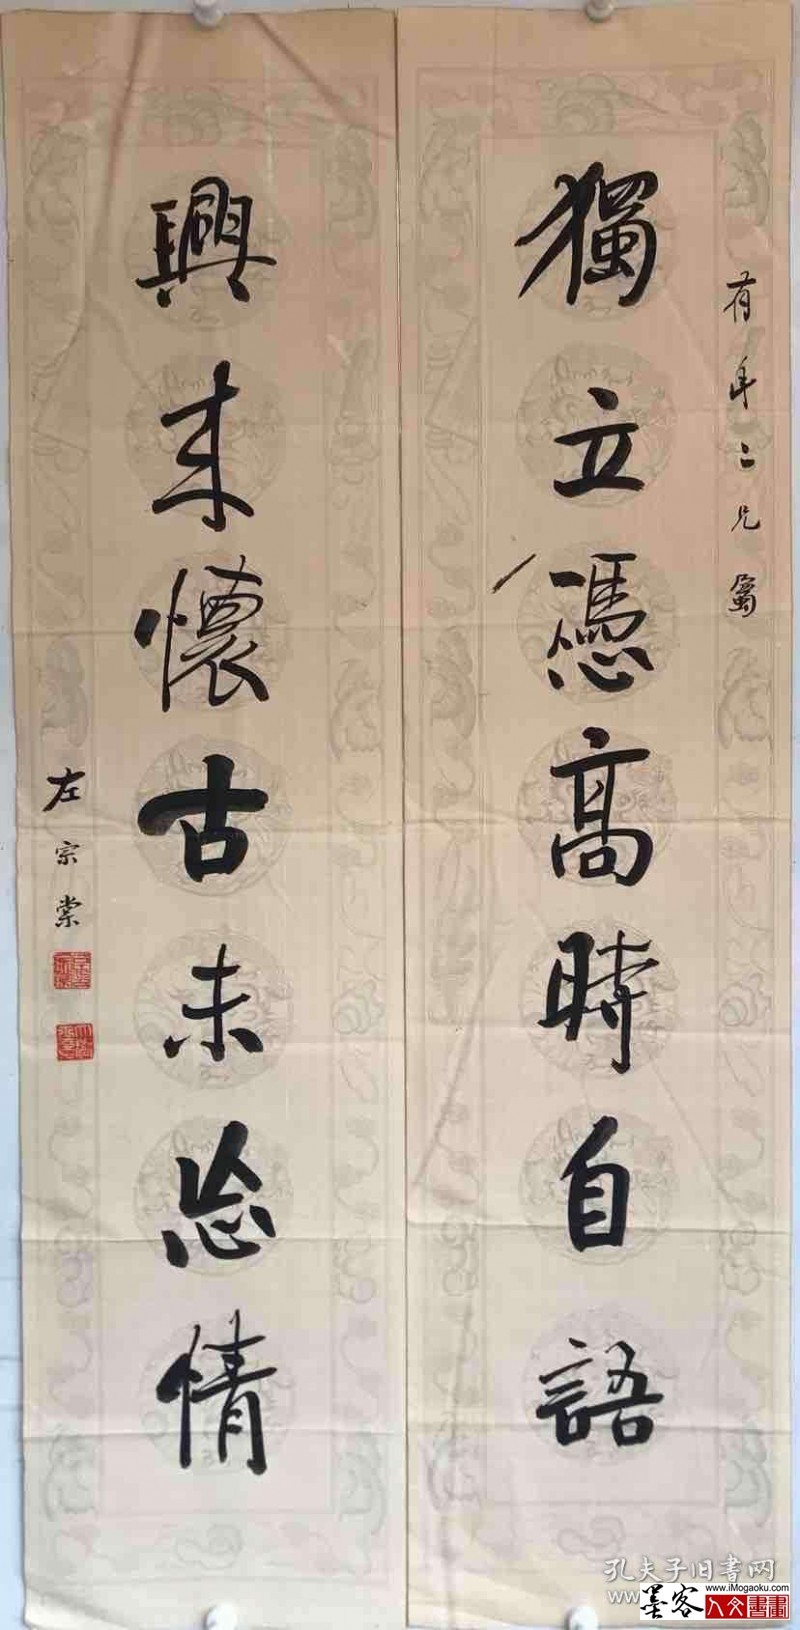 有年二兄屬
獨立憑高時自語
興來懷古未忘情
左宗棠
孔夫子旧书网
墨客
www.iMogaoku.com
人文書畫